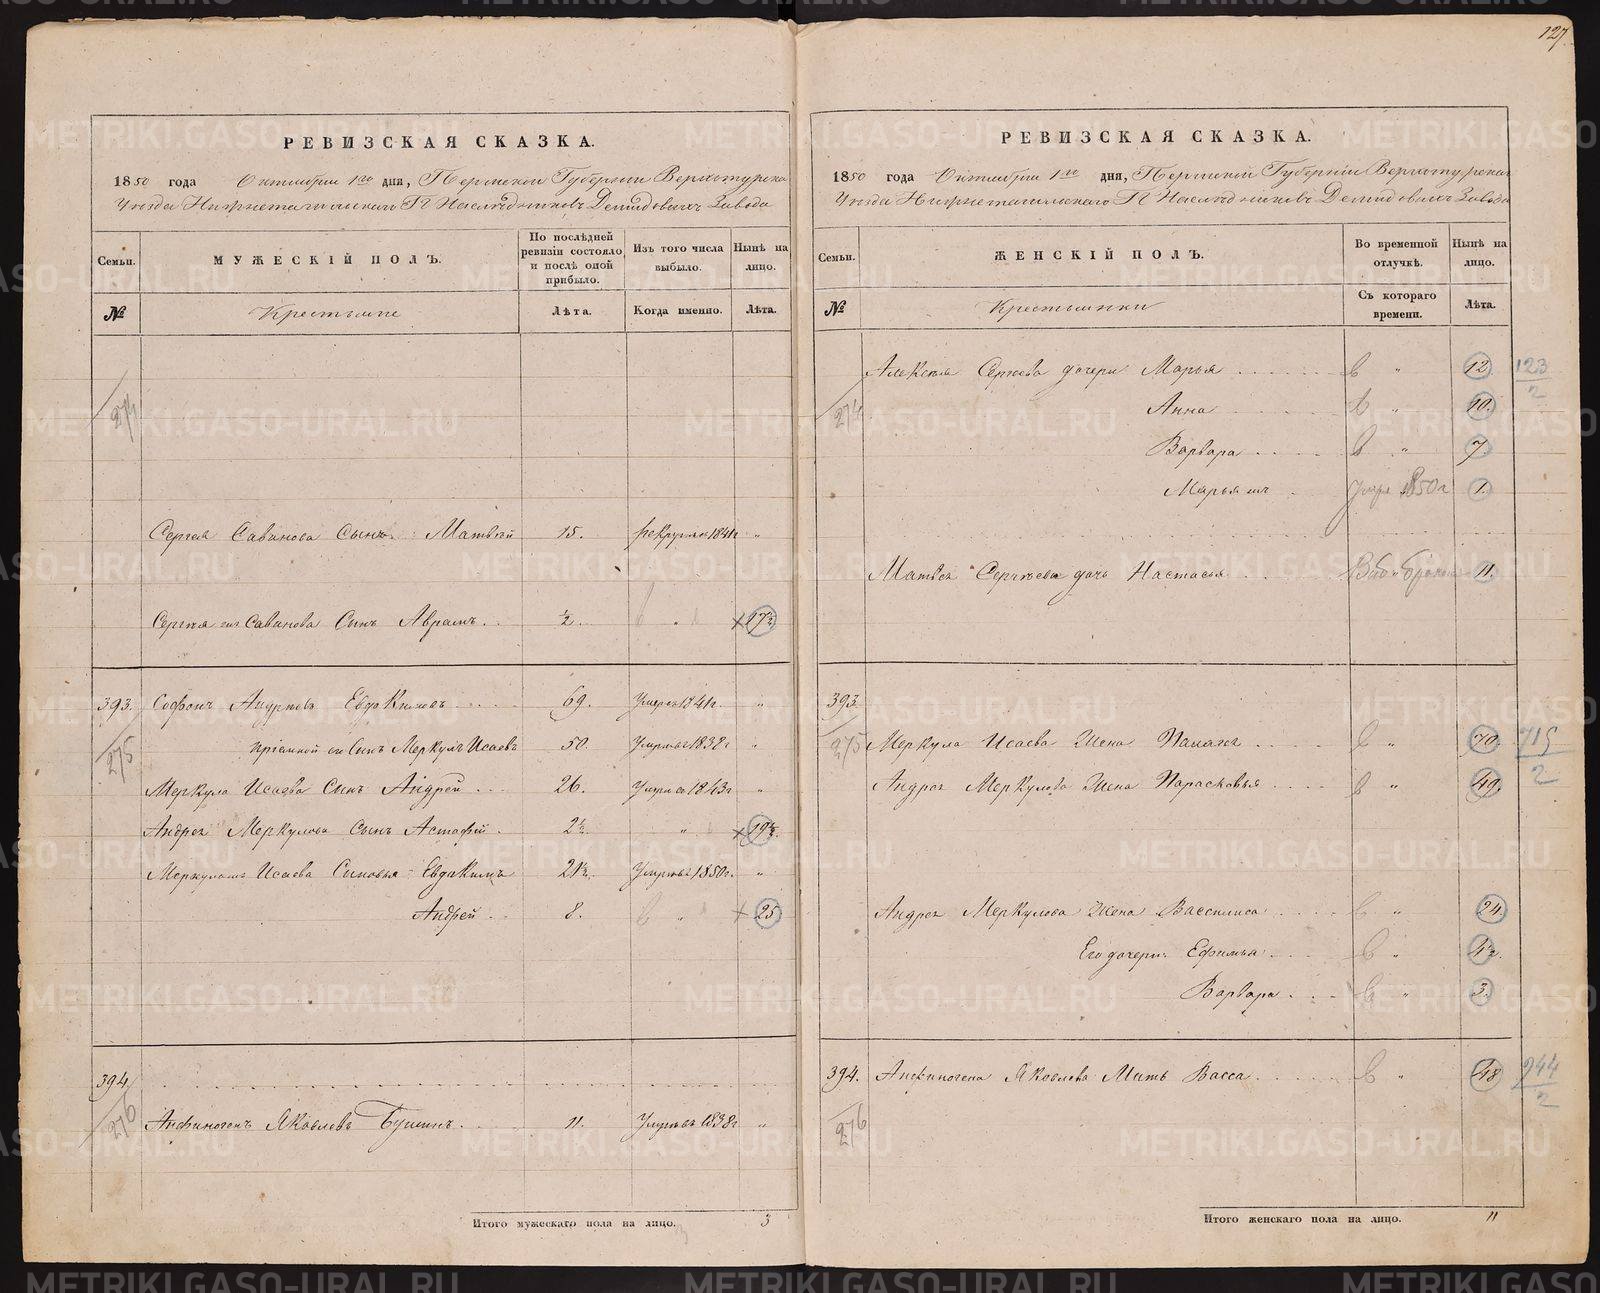 127.
РЕВИЗСКАЯ СКАЗКА.
1850 года Октября 1го дня, Пермской Губернии Верхотурска
Уезда Нижнетагильскаго Г.г. Наследниковъ Демидовыхъ Завода
Семьи. МУЖЕСКІЙ ПОЛЪ. По послѣдней ревизіи состояло и послѣ оной прибыло. Изъ того числа выбыло. Нынѣ на лицо.
№ Крестьяне Лѣта. Когда именно. Лѣта.
274
Сергея Саванова Сынъ Матвѣй 15. рекрутъ 1841г "
Сергѣя Саванова Сынъ Аврамъ ½ " 17½
393. Софонъ Евдокимовъ 69. Умеръ 1841г. "
275 пріемной его Сынъ Меркулъ Исаевъ 50. Умеръ 1838г "
Меркула Исаева Сынъ Андрей 26. Умеръ 1843г "
Андрея Меркулова Сынъ Астафей 2½ " 19½
Меркула Исаева Сыновья Евдокимъ 21½ Умеръ 1850г. "
Андрей 8. " 25
394.
276 Анфиногенъ Яковлевъ 11. Умеръ 1838г "
Итого мужескаго пола на лицо. 3
РЕВИЗСКАЯ СКАЗКА.
1850 года Октября 1го дня, Пермской Губерніи Верхотурскаго
Уезда Нижнетагильскаго Г.г. Наследниковъ Демидовыхъ Завода
Семьи. ЖЕНСКІЙ ПОЛЪ. Во временной отлучкѣ. Нынѣ на лицо.
№ Крестьянки Съ котораго времени. Лѣта.
Алексея Сергеева дочери Марья " 12 123/2
274 Анна " 10.
Варвара " 7
Марья 1850г 1.
Матвея Сергѣева дочь Настасья 11.
393.
275 Меркула Исаева Жена " 70 715/2
Андрея Меркулова Жена Парасковья " 49
Андрея Меркулова Жена Василиса " 24.
Его дочери: Ефимья " 4½.
Варвара " 3.
394. Анфиногена Яковлева Мать Васса " 48 244/2
276
Итого женскаго пола на лицо. 11
METRIKI.GASO-URAL.RU